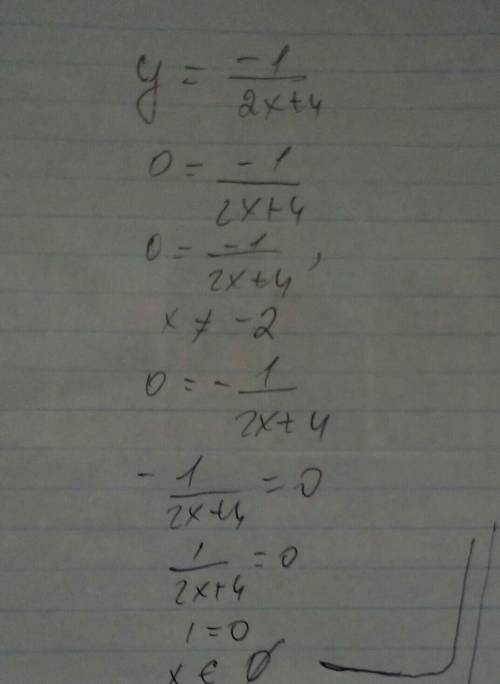 y = -1/(2x+4)
0 = -1/(2x+4)
0 = -1/(2x+4),
x ≠ -2
0 = -1/(2x+4)
-1/(2x+4) = 0
1/(2x+4) = 0
1 = 0
x ∈ Ø